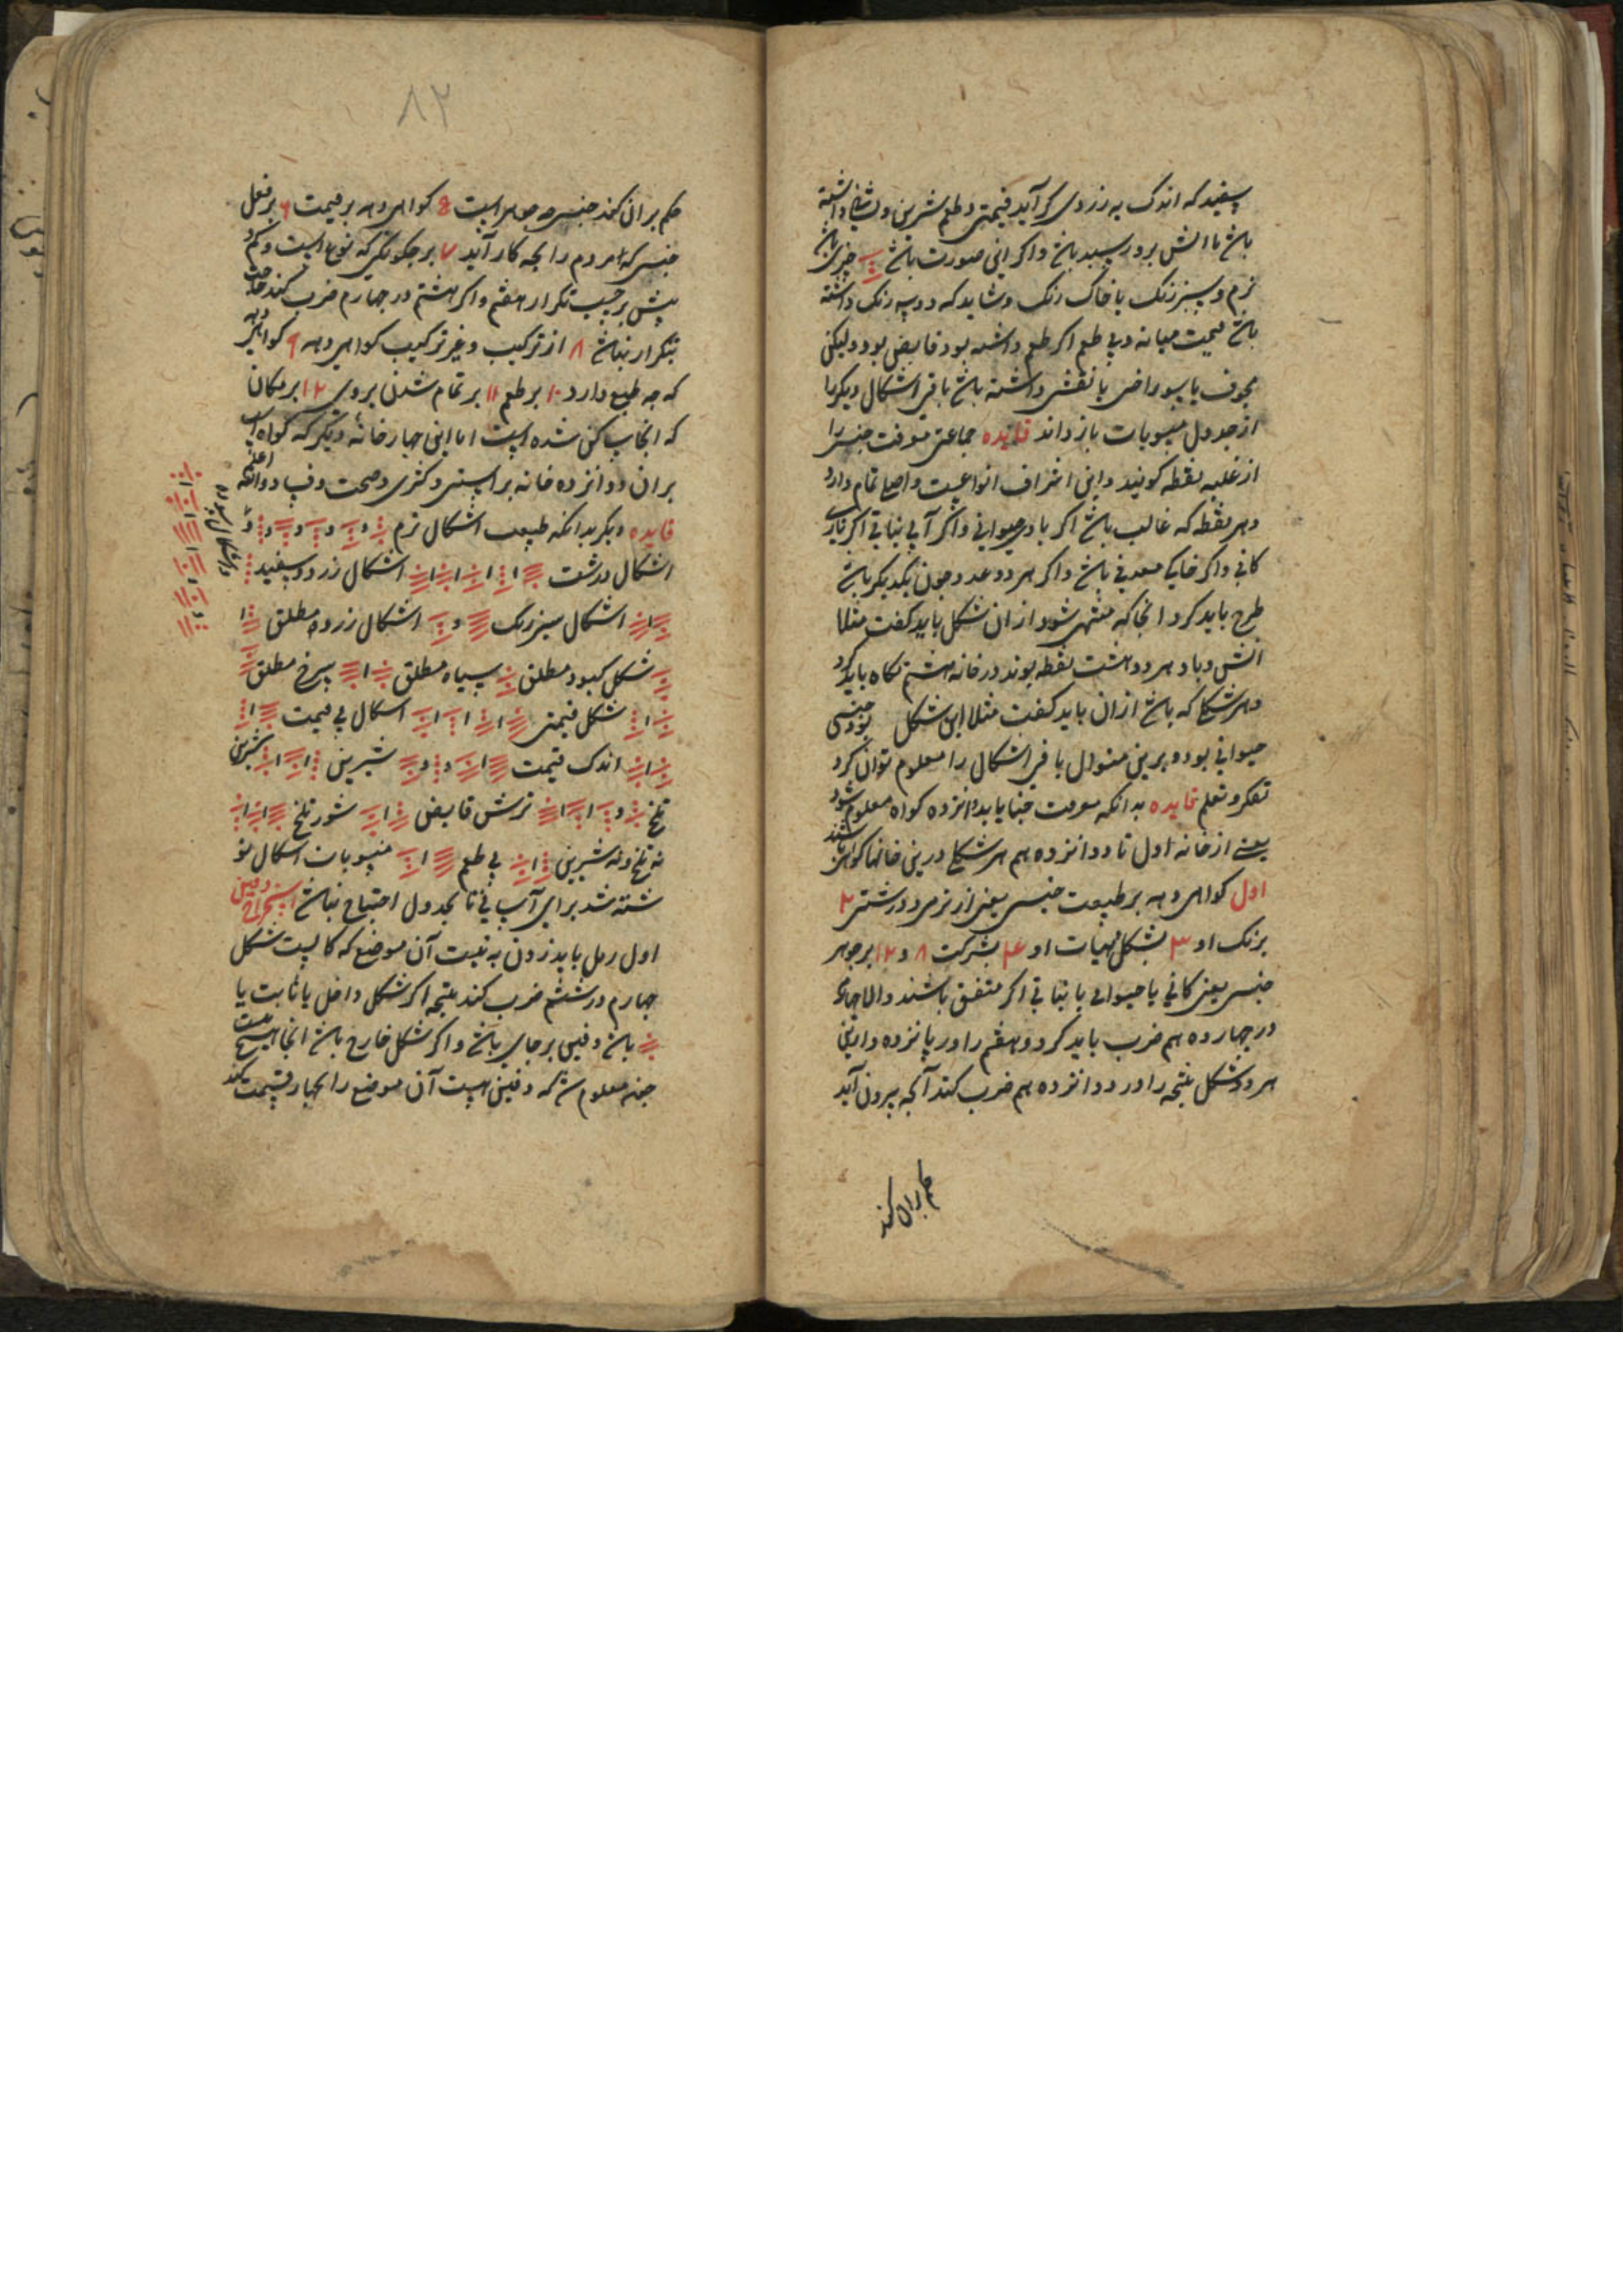 سفید که اندک به زردی گراید قیمتی و طعم شیرین و داشته
باشد یا آتش برو رسیده باشد و اگر این صورت باشد چیزی باشد
نرم و سبز رنگ یا خاک رنگ و شاید که دو سه رنگ داشته
باشد قیمت میانه و بی طعم اگر طعم داشته بود قابض بود ولیکن
مجوف یا سوراخی یا نقشی داشته باشد باقی اشکال دیگر را
از جدول منسوبات باز داند فایده جماعتی معرفت جنس را
از غلبه نقطه گویند و این اشراف انواعست و اصلی تمام دارد
و هر نقطه که غالب باشد اگر بادی حیوانی و اگر آبی نباتی اگر ناری
کانی و اگر خاکی معدنی باشد و اگر هر دو عدد چون یکدیگر باشد
طرح باید کرد آنجا که منتهی شود از آن شکل باید گفت مثلا
آتش و باد هر دو هشت نقطه بوند در خانه هشتم نگاه باید کرد
و هر شکل که باشد از آن باید گفت مثلا این شکل بود جنسی
حیوانی بود و برین منوال باقی اشکال را معلوم توان کرد
تفکر و تعلم فایده بدانکه معرفت خبایا بدوانزده گواه معلوم شود
یعنی از خانه اول تا دوانزده هم هر شکل درین خانها گواهی باشند
اول گواهی دهد بر طبیعت جنس یعنی از نرمی و درشتی ۲
برنگ او ۳ بشکل هیات او ۴ بشرکت ۸ و ۱۲ بر جوهر
جنس یعنی کانی یا حیوانی یا نباتی اگر متفق باشند والا چهارم
در چهارده هم ضرب باید کرد و هفتم را در پانزده و ازین
هر دو شکل نتیجه را در دوانزده هم ضرب کند آنچه بیرون آید
حکم بران کند
۸۲
حکم بران کند جنس چه جوهر است ۵ گواهی دهد بر قیمت ۶ بر فعل
جنس که مردم را بچه کار آید ۷ بر چگونگی که نوع است و کم
بیش بر حسب تکرار هفتم و اگر هشتم در چهارم ضرب کند
بتکرار نباشد ۸ از ترکیب و غیر ترکیب گواهی دهد ۹ گواهی دهد
که چه طبع دارد ۱۰ بر طعم ۱۱ بر تمام شدن بروی ۱۲ بر مکان
که آنجا ساکن شده است اما این چهار خانه دیگر که گواه است
بران دوانزده خانه بر راستی و کژی و صحت و فساد والله اعلم
فایده دیگر بدانکه طبیعت اشکال نرم و و و و و
اشکال درشت ا ا ا ا اشکال زرد و سفید
ا اشکال سبز رنگ و اشکال زرد مطلق ا
شکل کبود مطلق سیاه مطلق ا سرخ مطلق
ا شکل قیمتی ا ا ا اشکال بی قیمت ا
ا اندک قیمت ا و و شیرین ا ا
تلخ و ا ا ترش قابض ا شور تلخ ا ا
نه تلخ و نه شیرین ا بی طعم ا منسوبات اشکال نو
شته شد برای آسانی تا بجدول احتیاج نباشد استخراج دفین
اول رمل باید زدن به نیت آن موضع که کانست شکل
چهارم در ششم ضرب کند نتیجه اگر شکل داخل یا ثابت یا
باشد دفین بر جای باشد و اگر شکل خارج باشد آنجا هیچ نیست
چون معلوم شد که دفین هست آن موضع را بچهار قسمت کند